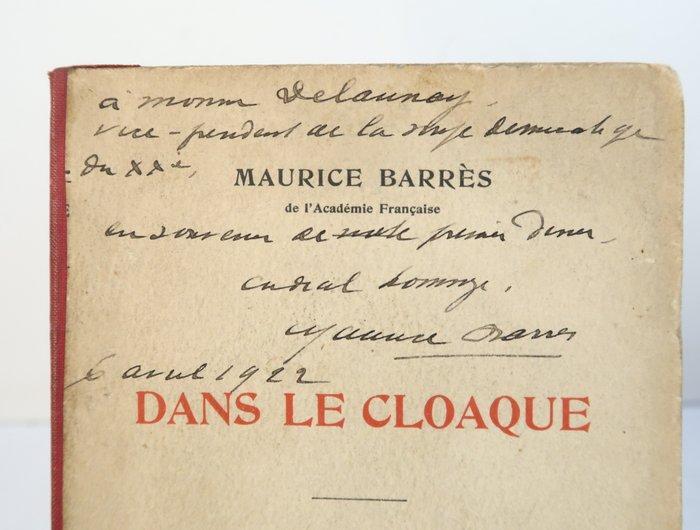 à monsr Delaunay
vice-président de la démocratique
du XXe,
MAURICE BARRÈS
de l'Académie Française
en souvenir de premier diner,
cordial hommage,
Maurice Barrès
6 avril 1922
DANS LE CLOAQUE